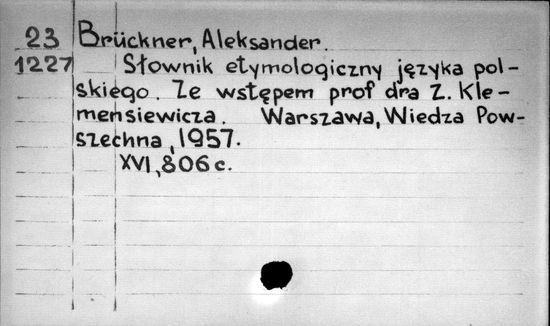 23 Brückner, Aleksander.
1227 Słownik etymologiczny języka pol-
skiego. Ze wstępem prof dra Z. Kle-
mensiewicza. Warszawa, Wiedza Pow-
szechna, 1957.
XVI, 806 c.